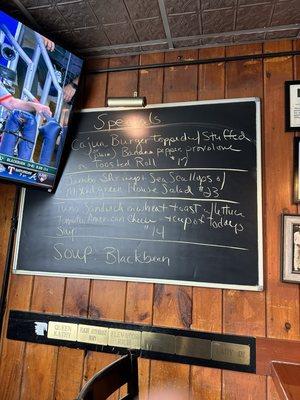 Specials
Cajun Burger topped w/ Stuffed
(plain) Banana pepper, provolone
Toasted Roll $17
Jumbo Shrimp & Sea Scallops w/
Mixed green House Salad $33
Tuna Sandwich on wheat toast w/ lettuce
Tomato, American Cheese + cup of todays
Soup $14
Soup: Blackbean
QUEEN
KATHY
ELEVATOR